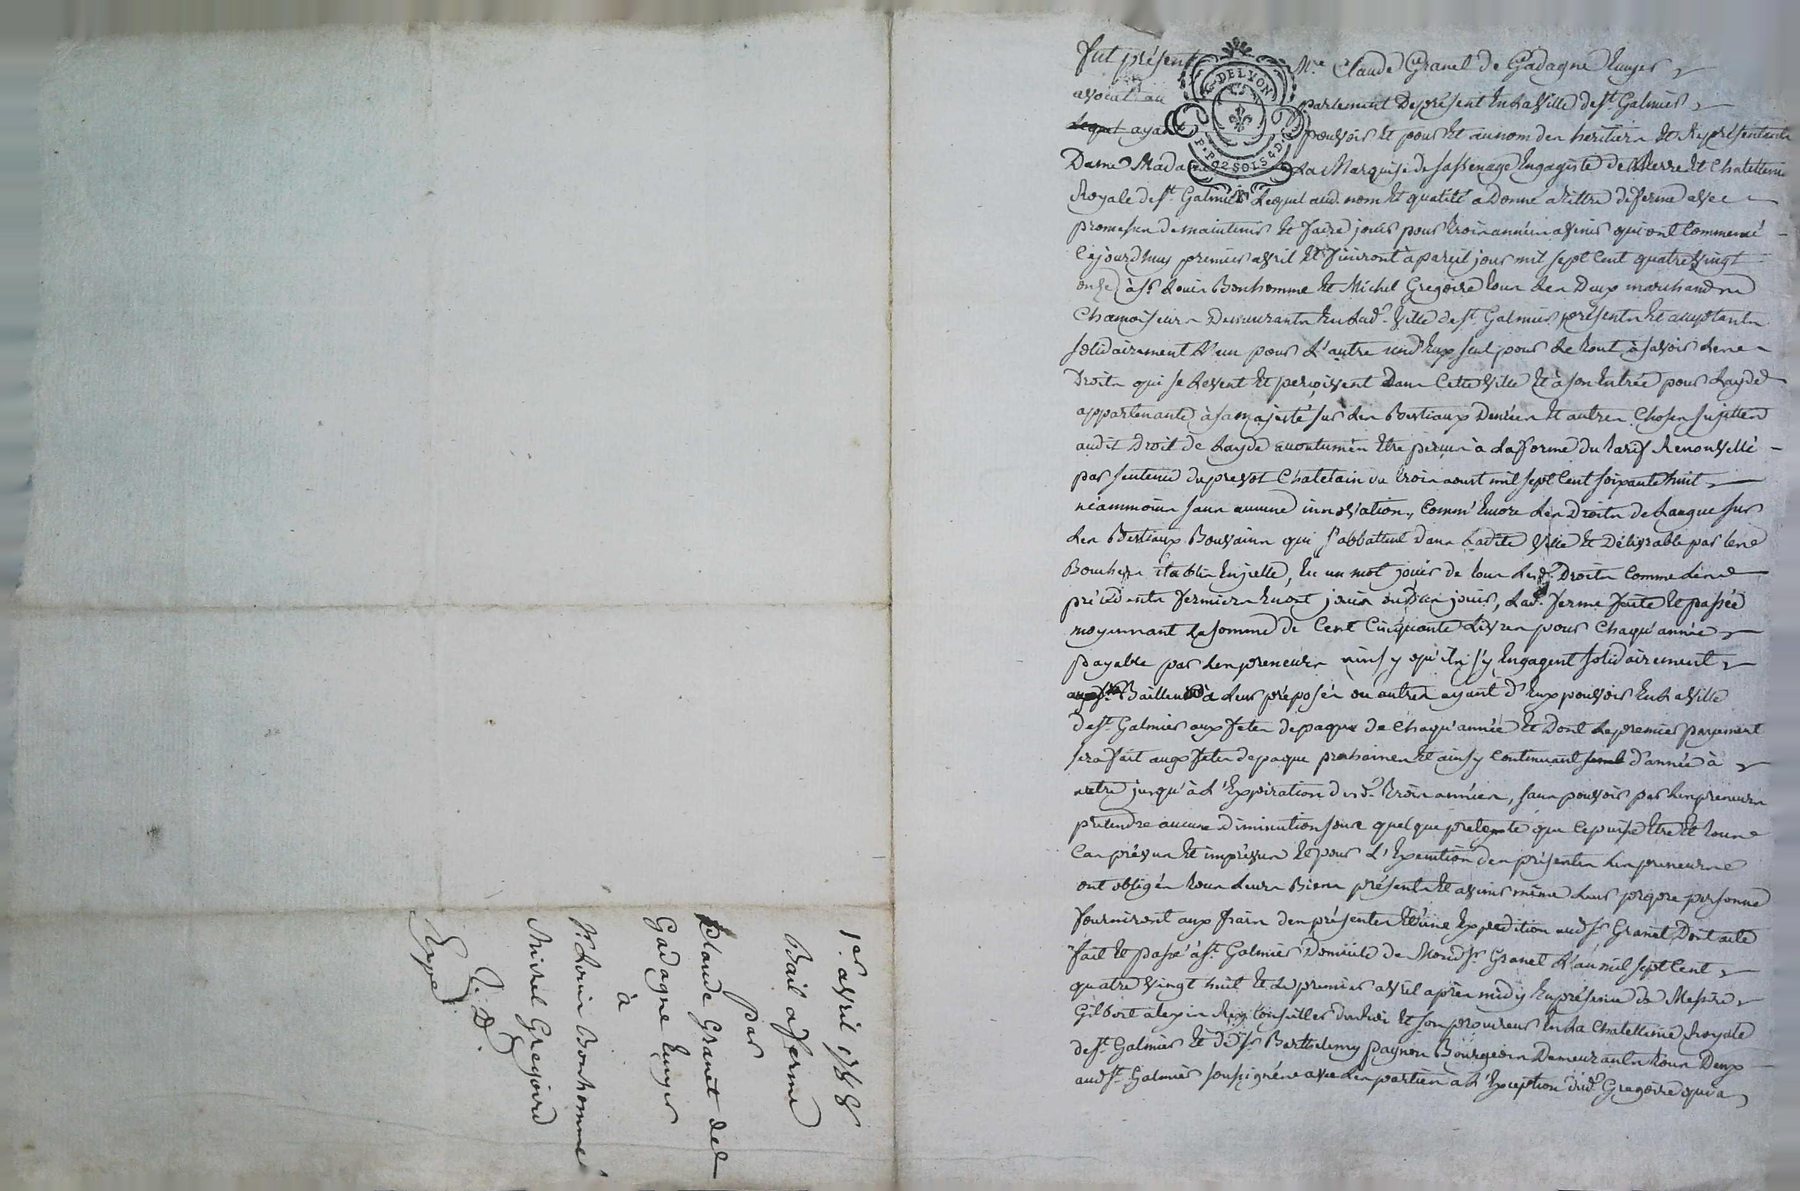 fut présent Mre Claude Granet de Gadagne Ecuyer
avocat au parlement De présent En La Ville de st Galmier
lequel ayant pouvoir Et pour Et au nom des heritiers Et Représentants
Dame Madame La Marquise de Sassenage Engagiste de terre Et Chatellenie
Royale de st Galmier Lequel aud. nom Et qualité a Donné a tittre de ferme avec
promesses de maintenir Et faire jouir pour trois années a venir qui ont Commencé
Cejourdhuy premier avril Et finiront à pareil jour mil sept Cent quatre vingt
onze à sr Louis Bonhomme Et Michel Gregoire tous Les Deux marchands
Chamoiseurs Demeurants En Lad. Ville de st Galmier présents Et acceptants
solidairement L'un pour L'autre un d'Eux seul pour Le tout, à savoir Les
Droits qui se Levent Et perçoivent Dans Cette Ville Et à son Entrée pour Layde
appartenante à sa majesté sur Les Bestiaux Denrées Et autres Choses sujettes
audit Droit de Layde accoutumés Etre perçus à La forme du tarif Renouvellé
par sentence du prevot Chatelain du trois aoust mil sept Cent soixante huit
néammoins sans aucune innovation, Comm'Encore Les Droits de Langue sur
Les Bestiaux Bouvains qui s'abbattent dans Ladite Ville Et Délivrable par Les
Bouchers établis En jcelle, En un mot jouir de tous Lesd. Droits Comme Les
précédents fermiers En ont joui ou dû jouir, Lad. ferme faite Et passée
moyennant La somme de Cent Cinquante Livres pour Chaqu'année
payable par Les preneurs ainsy qu'ils s'y Engagent solidairement
Bailleur à Leur préposés ou autres ayant d'Eux pouvoir En La Ville
de st Galmier aux fetes de paque de Chaqu'année Et Dont Le premier payement
sera fait aux fetes de paque prochaines Et ainsy Continuant d'année à
autre jusqu'à L'Expiration desd. trois années, sans pouvoir par Les preneurs
pretendre aucune Diminution sous quelque pretexte que Ce puisse Etre Et tous
Cas prévus Et imprévus Et pour L'Execution des présentes Les preneurs
ont obligés tous Leurs Biens présents Et avenir même Leur propre personne
fourniront aux frais des présentes Et d'une Expedition aud. sr Granet, Dont acte
fait Et passé à st Galmier Domicile de Mond. sr Granet L'an mil sept Cent
quatre vingt huit Et Le premier avril après midy En présence de Messire
Gilbert alexis Rey Conseiller du Roi Et son procureur En La Chatellenie Royale
de st Galmier Et de sr Barthelemy payron Bourgeois Demeurants tous Deux
aud. st Galmier soussignés avec Les parties à L'Exception dud. Gregoire qui a
1er avril 1788
Bail a ferme
par
Claude Granet de
Gadagne Ecuyer
à
sr Louis Bonhomme
Michel Gregoire
Exped